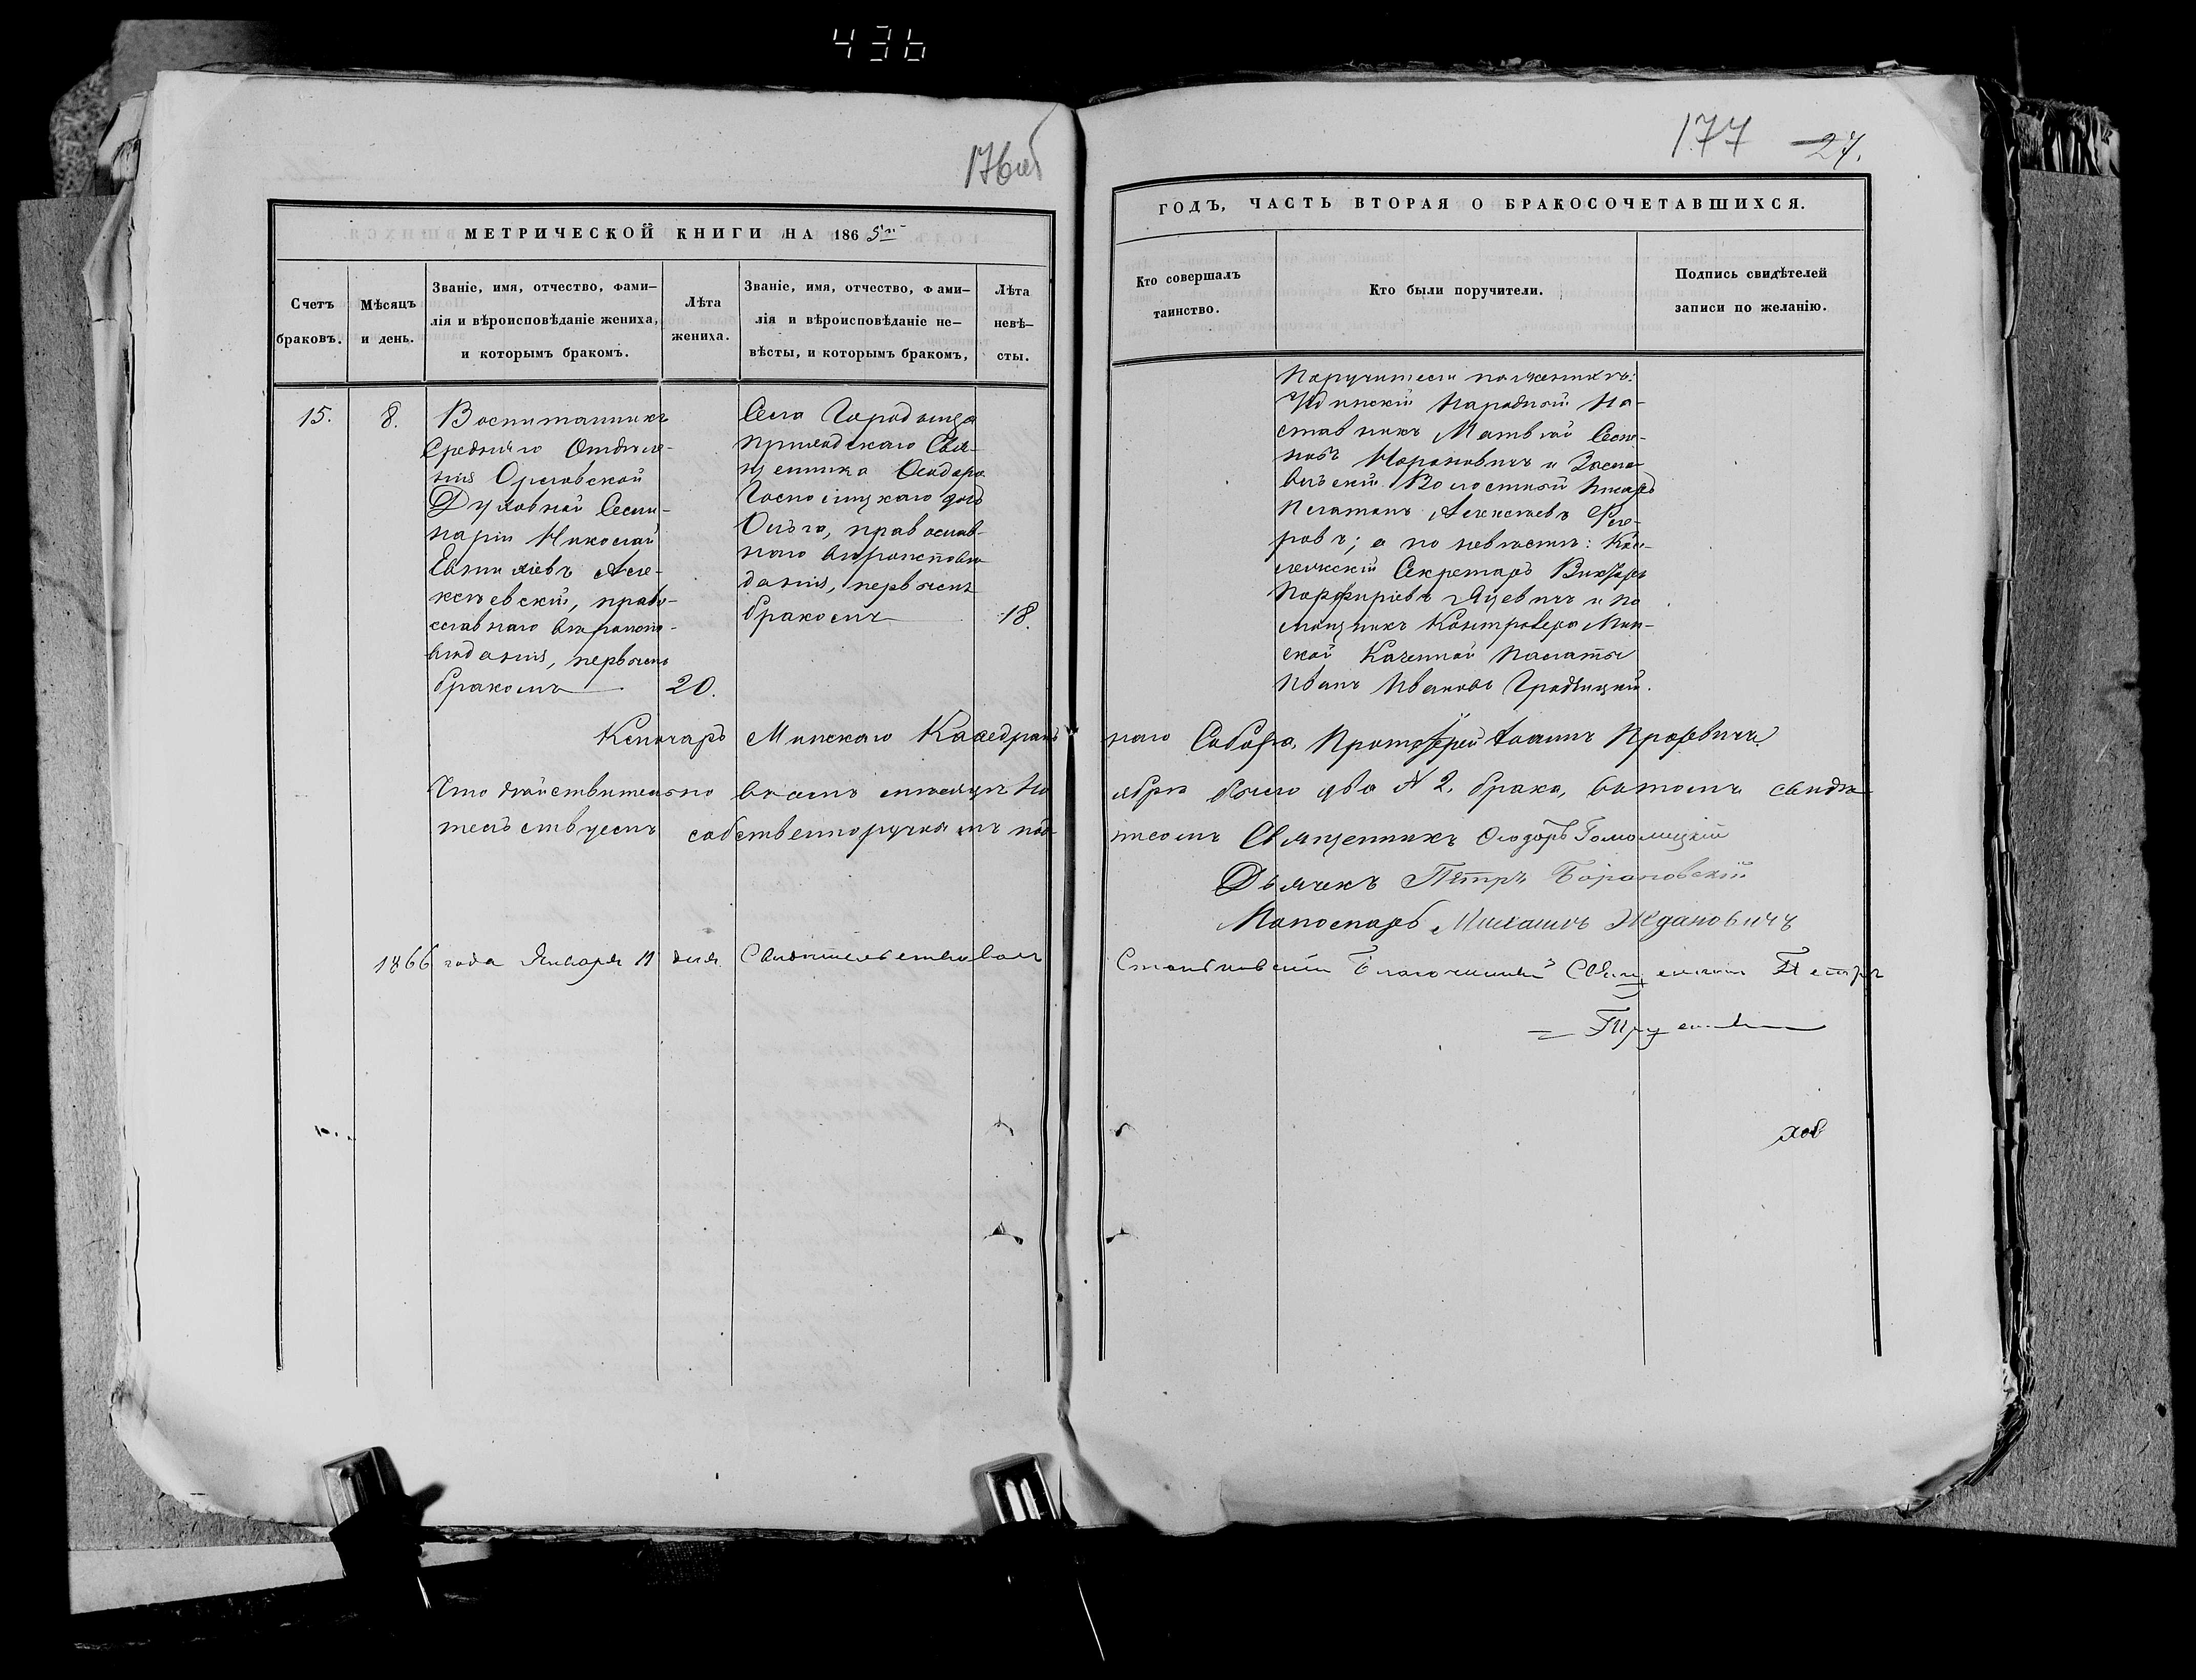 436
176об
177 27.
МЕТРИЧЕСКОЙ КНИГИ НА 1865
ГОДЪ, ЧАСТЬ ВТОРАЯ О БРАКОСОЧЕТАВШИХСЯ.
Счетъ
браковъ.
Мѣсяцъ
и день.
Званіе, имя, отчество, фами-
лія и вѣроисповѣданіе жениха,
и которымъ бракомъ.
Лѣта
жениха.
Званіе, имя, отчество, фами-
лія и вѣроисповѣданіе не-
вѣсты, и которымъ бракомъ,
Лѣта
невѣ-
сты.
Кто совершалъ
таинство.
Кто были поручители.
Подпись свидѣтелей
записи по желанію.
15.
8.
Воспитанникъ
Средняго Отдѣле-
нія Орловской
Духовной Семи-
наріи Николай
Але-
ксѣевскій, право-
славнаго вѣроиспо-
вѣданія, первымъ
бракомъ
20.
Села Городища
приходскаго Свя-
щенника Ѳеодора
дочь
Ольга, православ-
наго вѣроисповѣ-
данія, первымъ
бракомъ
18.
Поручители по женихѣ:
народный На-
ставникъ Матвѣй Семе-
новъ и Засла-
вльскій Волостный писарь
Платонъ Алексѣевъ
ровъ; а по невѣстѣ: Кол-
лежскій Секретарь Викторъ
Порфиріевъ Яцевичъ и по
мощникъ Контролера Мин-
ской Казенной палаты
Иванъ Ивановъ
Ключарь Минскаго Каѳедраль
наго Собора, Протоіерей Іоаннъ
Что дѣйствительно въ семъ мѣсяцѣ Но
ябрѣ было два № 2. брака, въ томъ свидѣ
тельствуемъ собственноручнымъ под-
писомъ Священникъ Ѳеодоръ Гомолицкій
Дьячекъ Петръ Барановскій
Пономарь Михаилъ Ждановичъ
1866 года Января 11 дня. Свидѣтельствовалъ
Благочинный Священникъ Петръ